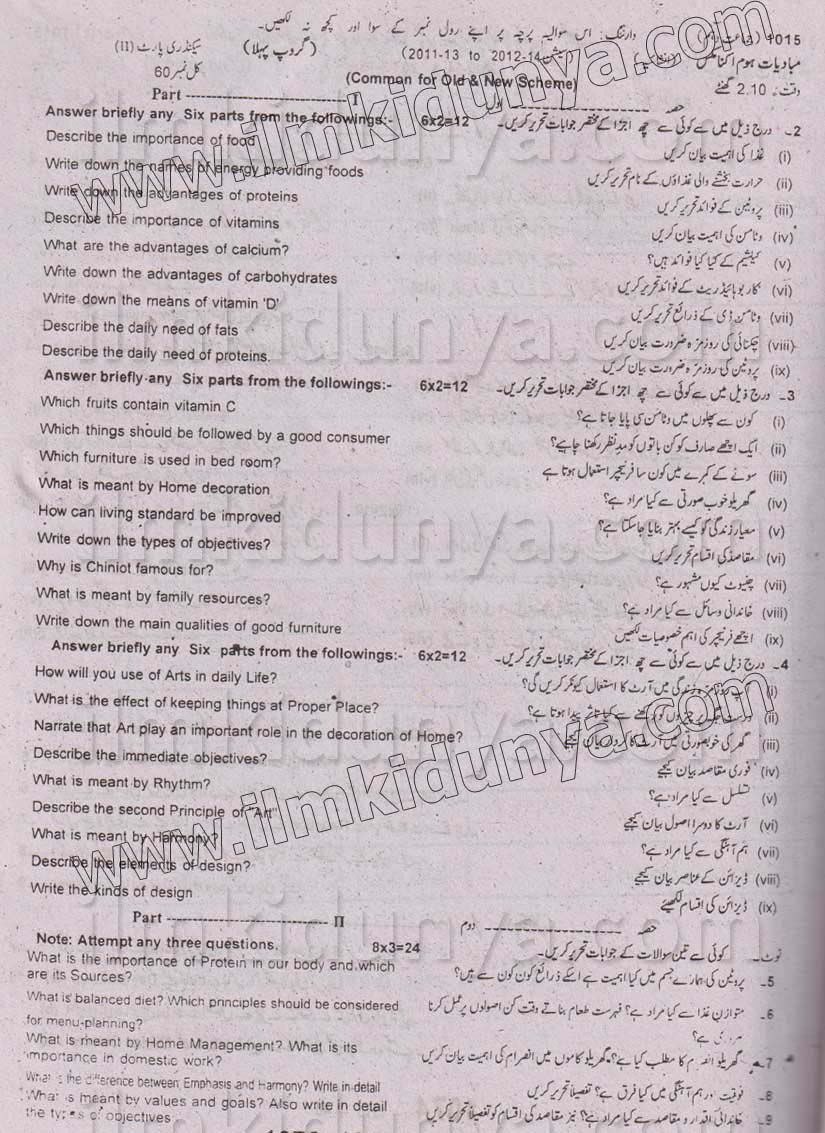 1015 (جماعت دہم) وارننگ: اس سوالیہ پرچہ پر اپنے رول نمبر کے سوا اور کچھ نہ لکھیں۔
مبادیات ہوم اکنامکس (سیشن 2011-13 to 2012-14) (گروپ پہلا) سیکنڈری پارٹ (II)
وقت: 2.10 گھنٹے (Common for Old & New Scheme) کل نمبر 60
Part --- I حصہ اول
Answer briefly any Six parts from the followings:- 6x2=12 2۔ درج ذیل میں سے کوئی سے چھ اجزا کے مختصر جوابات تحریر کریں۔
Describe the importance of food (i) غذا کی اہمیت بیان کریں
Write down the names of energy providing foods (ii) حرارت بخشنے والی غذاؤں کے نام تحریر کریں
Write down the advantages of proteins (iii) پروٹین کے فوائد تحریر کریں
Describe the importance of vitamins (iv) وٹامن کی اہمیت بیان کریں
What are the advantages of calcium? (v) کیلشیم کے کیا کیا فوائد ہیں؟
Write down the advantages of carbohydrates (vi) کاربوہائیڈریٹ کے فوائد تحریر کریں
Write down the means of vitamin 'D' (vii) وٹامن ڈی کے ذرائع تحریر کریں
Describe the daily need of fats (viii) چکنائی کی روزمرہ ضرورت بیان کریں
Describe the daily need of proteins. (ix) پروٹین کی روزمرہ ضرورت بیان کریں
Answer briefly any Six parts from the followings:- 6x2=12 3۔ درج ذیل میں سے کوئی سے چھ اجزا کے مختصر جوابات تحریر کریں۔
Which fruits contain vitamin C (i) کون سے پھلوں میں وٹامن سی پایا جاتا ہے؟
Which things should be followed by a good consumer (ii) ایک اچھے صارف کو کن باتوں کو مدنظر رکھنا چاہیے؟
Which furniture is used in bed room? (iii) سونے کے کمرے میں کون سا فرنیچر استعمال ہوتا ہے
What is meant by Home decoration (iv) گھریلو خوب صورتی سے کیا مراد ہے؟
How can living standard be improved (v) معیار زندگی کو کیسے بہتر بنایا جاسکتا ہے؟
Write down the types of objectives? (vi) مقاصد کی اقسام تحریر کریں
Why is Chiniot famous for? (vii) چنیوٹ کیوں مشہور ہے؟
What is meant by family resources? (viii) خاندانی وسائل سے کیا مراد ہے؟
Write down the main qualities of good furniture (ix) اچھے فرنیچر کی اہم خصوصیات لکھیں
Answer briefly any Six parts from the followings:- 6x2=12 4۔ درج ذیل میں سے کوئی سے چھ اجزا کے مختصر جوابات تحریر کریں۔
How will you use of Arts in daily Life? (i) روزمرہ زندگی میں آرٹ کا استعمال کیونکر کریں گی؟
What is the effect of keeping things at Proper Place? (ii) چیزوں کو رکھنے سے کیا تاثر پیدا ہوتا ہے؟
Narrate that Art play an important role in the decoration of Home? (iii) گھر کی خوبصورتی میں آرٹ کا کردار بیان کیجیے
Describe the immediate objectives? (iv) فوری مقاصد بیان کیجیے
What is meant by Rhythm? (v) تسلسل سے کیا مراد ہے؟
Describe the second Principle of "Art" (vi) آرٹ کا دوسرا اصول بیان کیجیے
What is meant by Harmony? (vii) ہم آہنگی سے کیا مراد ہے؟
Describe the elements of design? (viii) ڈیزائن کے عناصر بیان کیجیے
Write the kinds of design (ix) ڈیزائن کی اقسام لکھیئے
Part --- II حصہ دوم
Note: Attempt any three questions. 8x3=24 نوٹ۔ کوئی سے تین سوالات کے جوابات تحریر کریں۔
What is the importance of Protein in our body and which 5۔ پروٹین کی ہمارے جسم میں کیا اہمیت ہے اسکے ذرائع کون کون سے ہیں؟
are its Sources?
What is balanced diet? Which principles should be considered 6۔ متوازن غذا سے کیا مراد ہے؟ فہرست طعام بناتے وقت کن اصولوں پر عمل کرنا
for menu-planning? ہے؟
What is meant by Home Management? What is its 7۔ گھریلو انصرام کا مطلب کیا ہے؟ گھریلو کاموں میں انصرام کی اہمیت بیان کریں
importance in domestic work?
What is the difference between Emphasis and Harmony? Write in detail 8۔ فوقیت اور ہم آہنگی میں کیا فرق ہے؟ تفصیلاً تحریر کریں
What is meant by values and goals? Also write in detail 9۔ خاندانی اقدار و مقاصد سے کیا مراد ہے؟ نیز مقاصد کی اقسام کو تفصیلاً تحریر کریں
the types of objectives
www.ilmkidunya.com
www.ilmkidunya.com
ilmkidunya.com
ilmkidunya.com
ilmkidunya.com
ilmkidunya.com
ilmkidunya.com